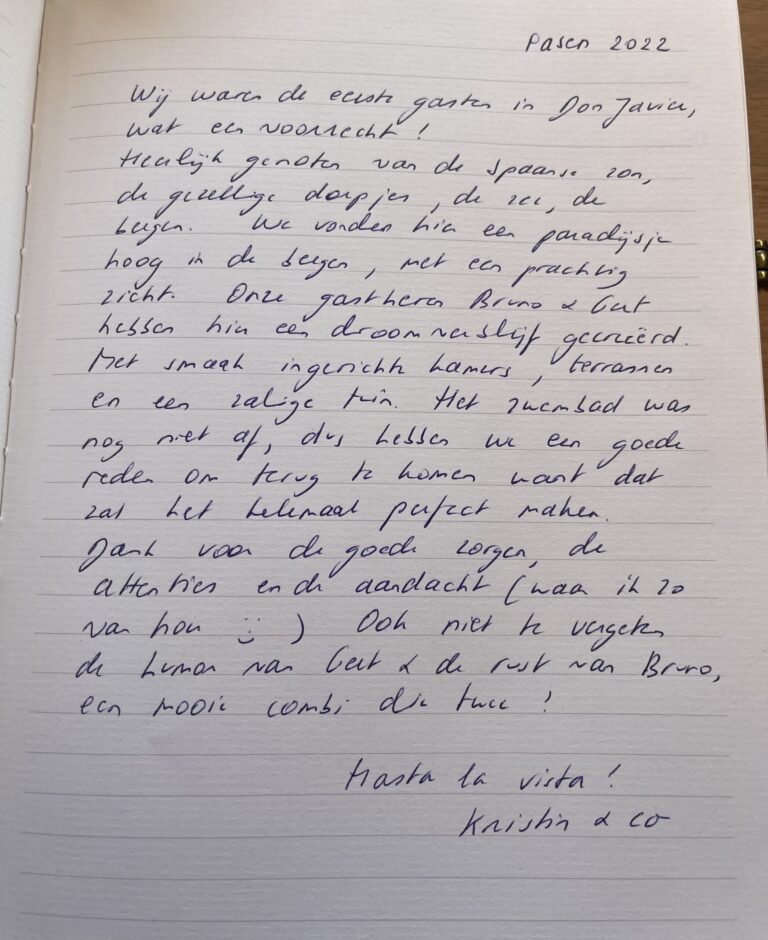 Pasen 2022
Wij waren de eerste gasten in Don Javier,
wat een voorrecht!
Heerlijk genoten van de Spaanse zon,
de gezellige dorpjes, de zee, de
bergen. We vonden hier een paradijsje
hoog in de bergen, met een prachtig
zicht. Onze gastheren Bruno & Gert
hebben hier een droomverblijf gecreëerd.
Met smaak ingerichte kamers, terrassen
en een zalige tuin. Het zwembad was
nog niet af, dus hebben we een goede
reden om terug te komen want dat
zal het helemaal perfect maken.
Dank voor de goede zorgen, de
attenties en de aandacht (waar ik zo
van hou :) ) Ook niet te vergeten
de humor van Gert & de rust van Bruno,
een mooie combi die twee!
Hasta la vista!
Kristin & co